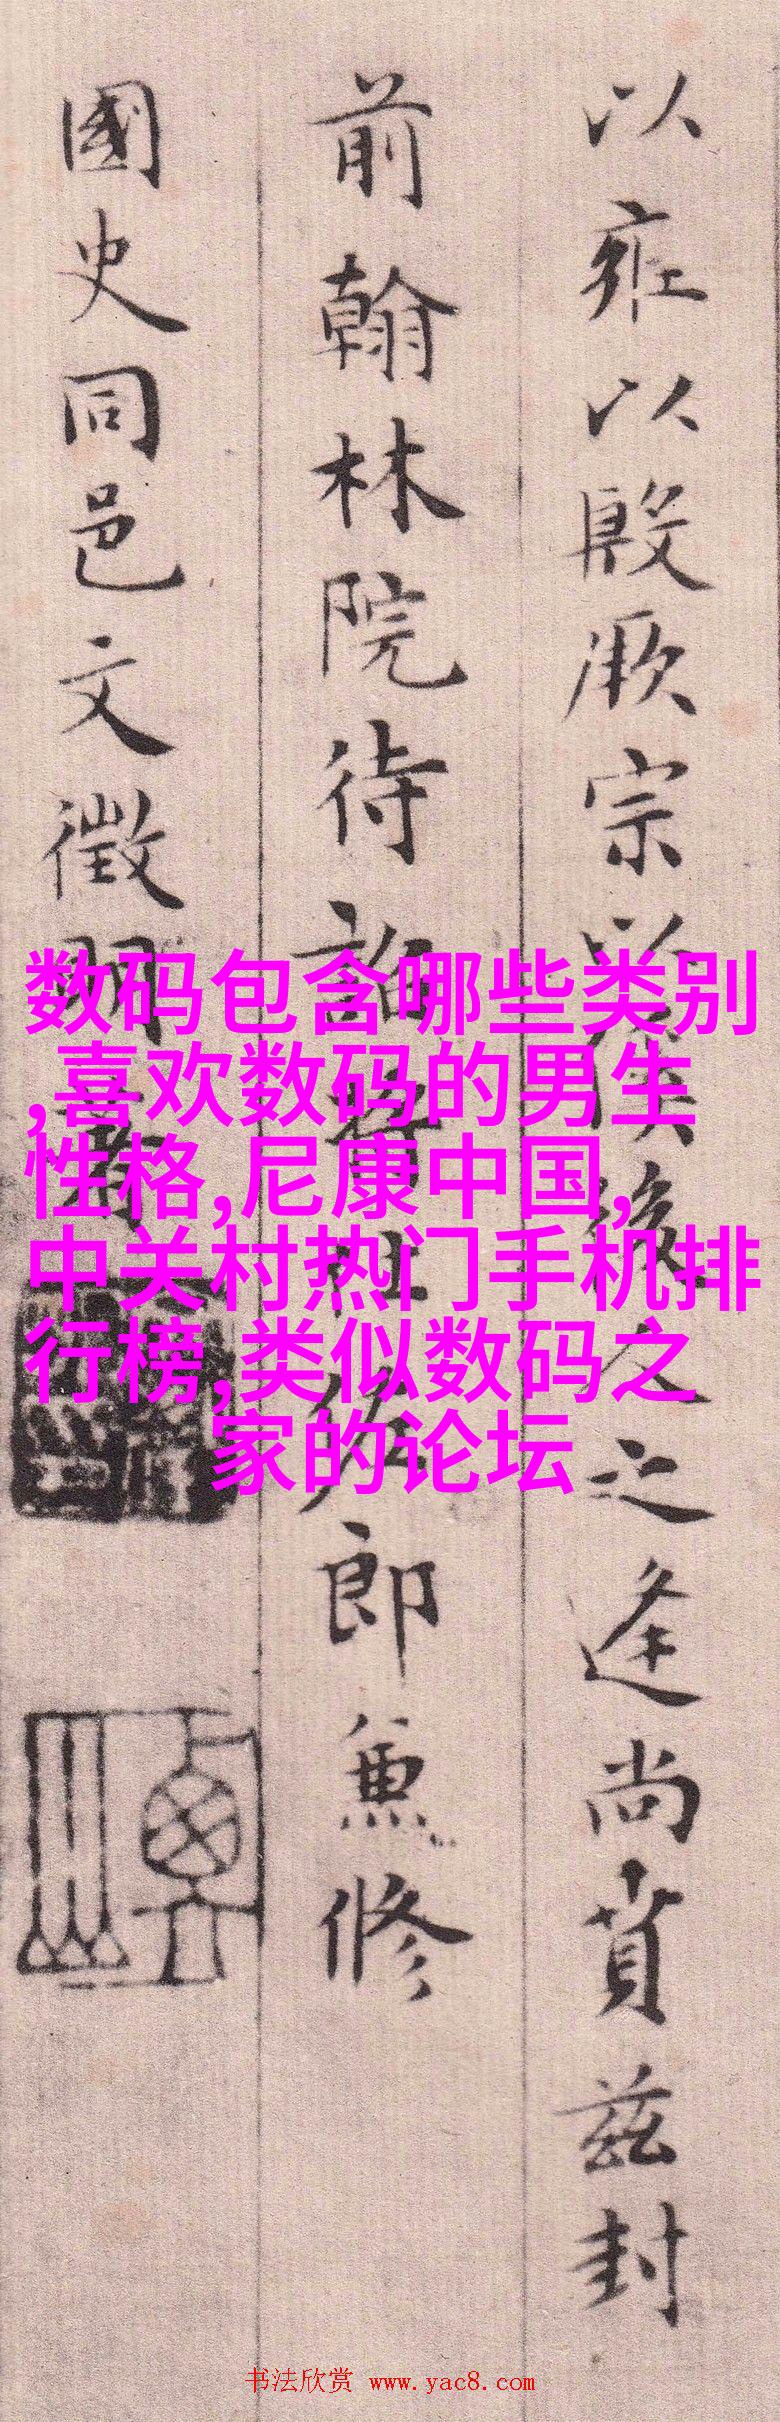 以雍以殷厥宗以后之逢尚賁茲封
前翰林院待詔將仕佐郎兼修
國史同邑文徵明書
数码包含哪些类别
,喜欢数码的男生
性格,尼康中国,
中关村热门手机排
行榜,类似数码之
家的论坛
书法欣赏 www.yac8.com